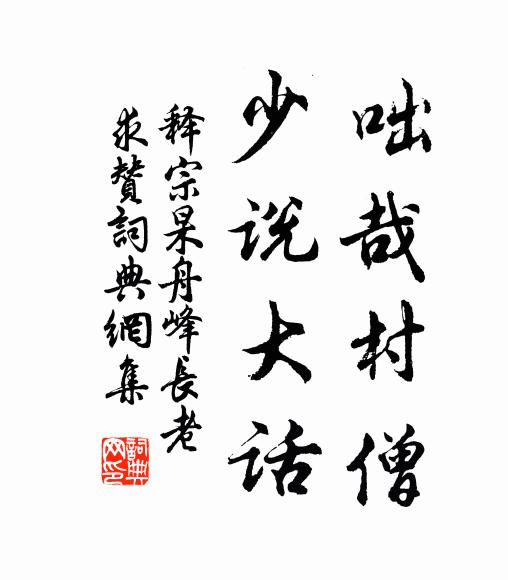 咄哉村僧
少说大话
释宗杲舟峰長老
求贊詞典網集
詞典网印